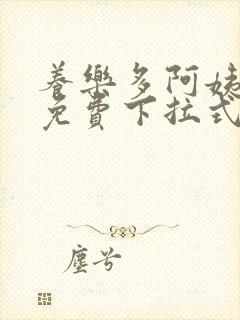 養樂多阿姨
免費下拉式
塵兮